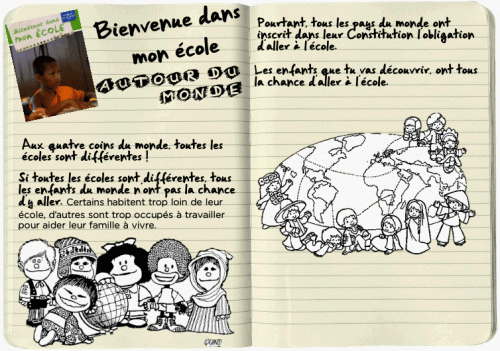 Bienvenue dans
mon ÉCOLE
Bienvenue dans
mon école
AUTOUR DU
MONDE
Aux quatre coins du monde, toutes les
écoles sont différentes !
Si toutes les écoles sont différentes, tous
les enfants du monde n'ont pas la chance
d'y aller. Certains habitent trop loin de leur
école, d'autres sont trop occupés à travailler
pour aider leur famille à vivre.
QUINO
Pourtant, tous les pays du monde ont
inscrit dans leur Constitution l'obligation
d'aller à l'école.
Les enfants que tu vas découvrir, ont tous
la chance d'aller à l'école.